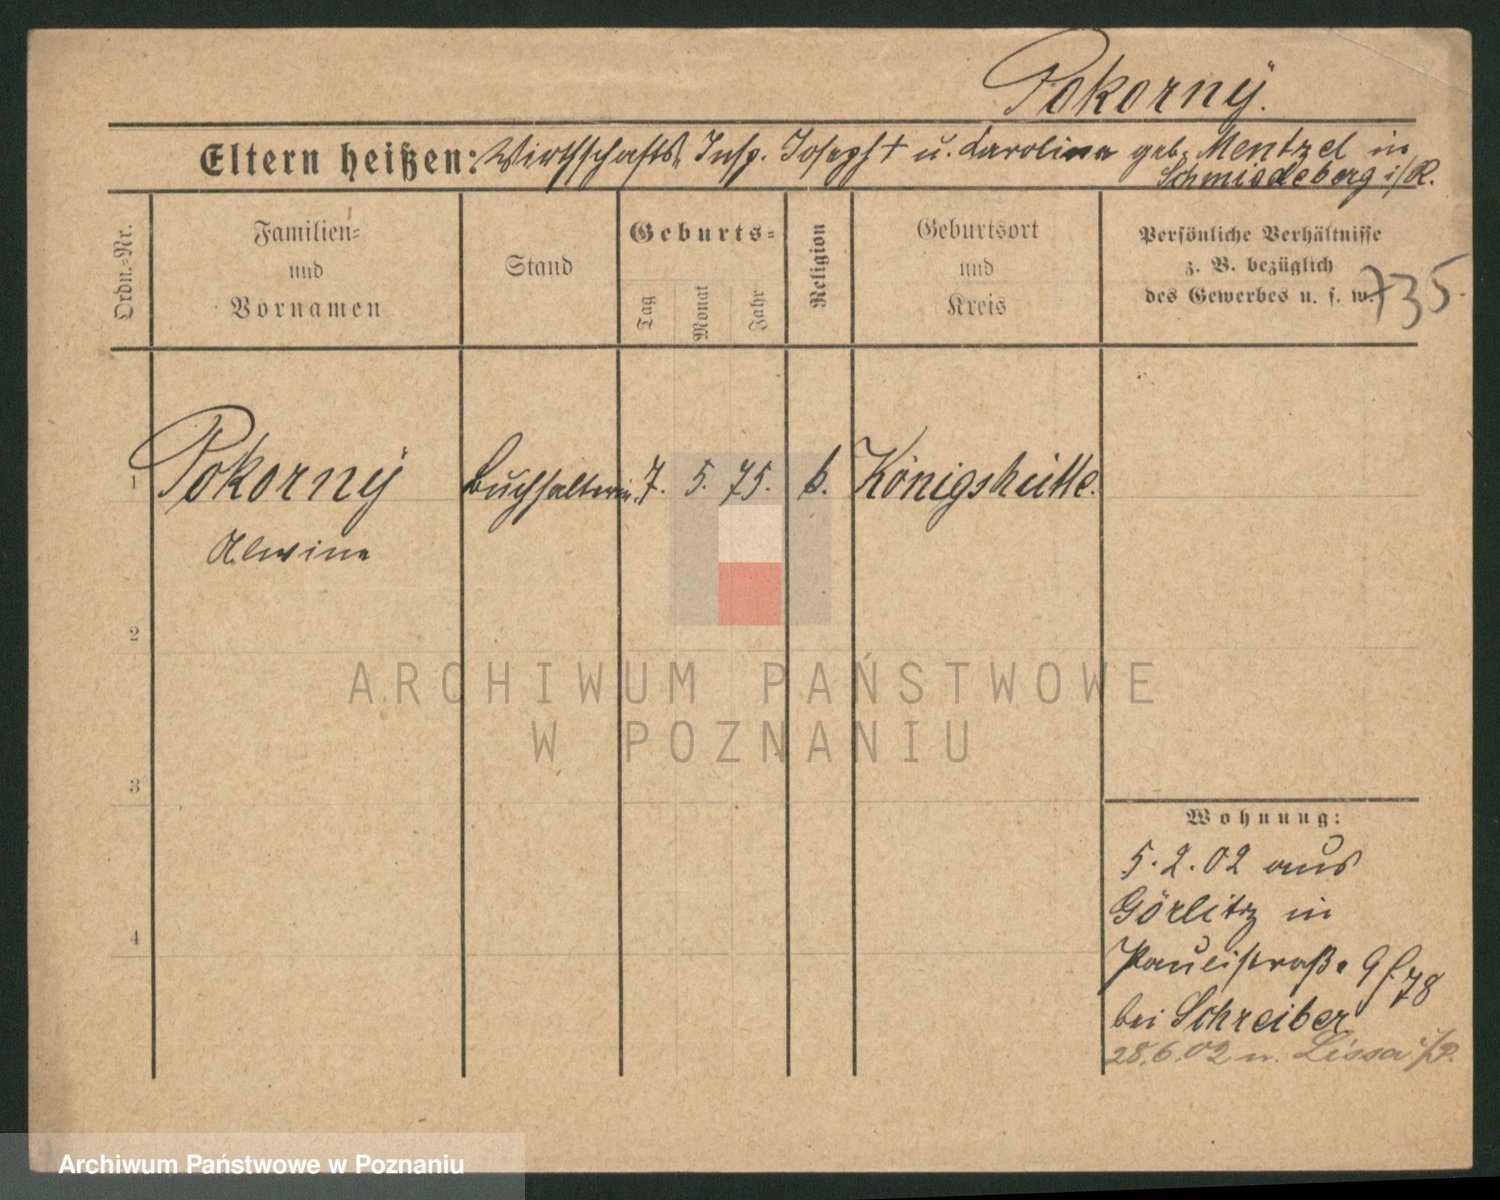 Pokorný.
Eltern heißen: Wirthschafts Insp. Joseph † u. Karoline geb. Mentzel in
Schmiedeberg i/R.
Ordn.-Nr.
Familien-
und
Vornamen
Stand
Geburts-
Tag
Monat
Jahr
Religion
Geburtsort
und
Kreis
Persönliche Verhältnisse
z. B. bezüglich
des Gewerbes u. s. w.
735.
1
Pokorný
Buchhalterin
7.
5.
75.
k.
Königshütte.
Alwine
2
ARCHIWUM PAŃSTWOWE
W POZNANIU
3
Wohnung:
5. 2. 02 aus
Görlitz in
4
Paulistraße 9 f. 78
bei Schreiber
28.6.02 n. Lissa i/P.
Archiwum Państwowe w Poznaniu